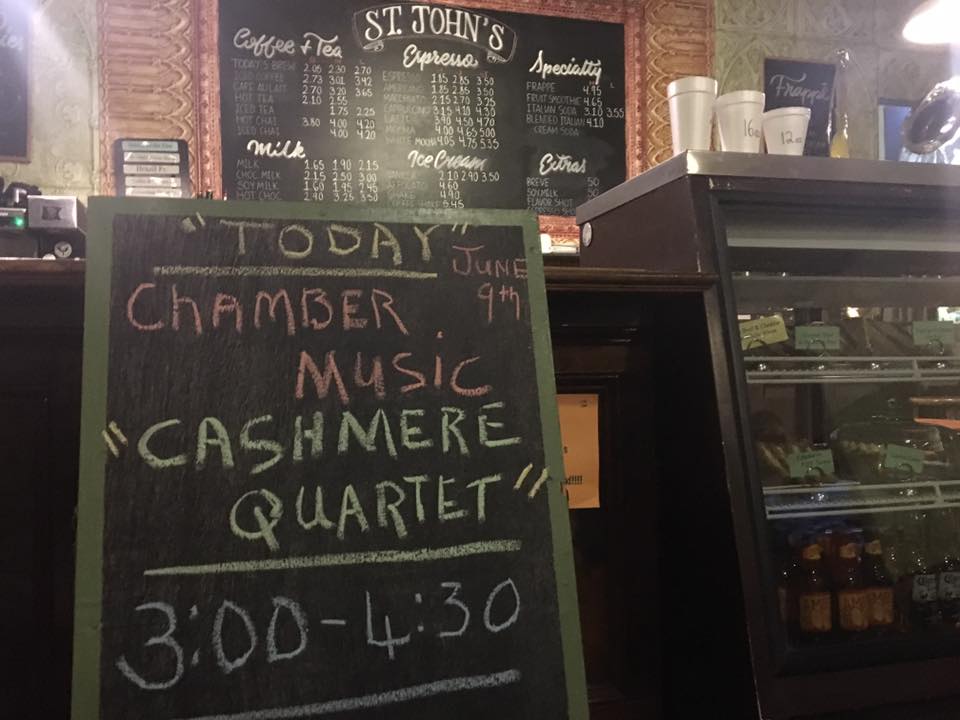 ST. JOHN'S
Coffee + Tea
TODAY'S BREW 2.05 2.30 2.70
ICED COFFEE 2.73 3.01 3.42
CAFE AU LAIT 2.70 3.20 3.65
HOT TEA 2.10 2.55
ICED TEA 1.75 2.25
HOT CHAI 3.80 4.00 4.20
ICED CHAI 4.00 4.20
Milk
MILK 1.65 1.90 2.15
CHOC MILK 2.15
SOY MILK 1.60
HOT CHOC 3.25 3.50
Espresso
ESPRESSO 1.85 2.85 3.50
AMERICANO
MACCHIATO 2.15 2.70 3.25
CAPPUCCINO 3.15 4.10 4.30
LATTE 3.90 4.50 4.70
MOCHA 4.00 4.65 5.00
WHITE MOCHA 4.05 4.75 5.35
Ice Cream
2.10 2.90 3.50
AFFOGATO 4.60
4.90
5.45
Specialty
FRAPPE 4.95
FRUIT SMOOTHIE 4.65
ITALIAN SODA 3.10 3.55
BLENDED ITALIAN 4.10
CREAM SODA
Extras
BREVE 50
SOY MILK 50
FLAVOR SHOT
ESPRESSO SHOT
Frappé
16oz
12oz
"TODAY"
JUNE
9th
CHAMBER
MUSIC
"CASHMERE
QUARTET"
3:00-4:30